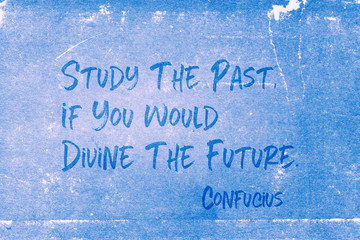 Study The Past,
if You Would
Divine The Future.
Confucius